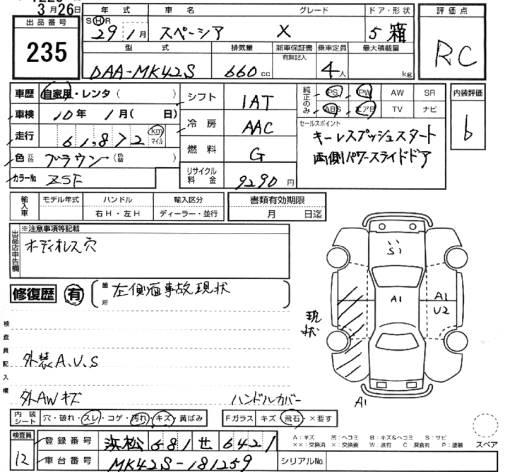 3月26日
出品番号
235
年式 車名 グレード ドア・形状
S H R 29年1月 スペーシア X 5 箱
型式 排気量 新車保証書 有無記入 乗車定員 最大積載量
DAA-MK42S 660cc 4人 kg
評価点
RC
車歴 自家用・レンタ( )
車検 10年1月( 日)
走行 61,872 Km マイル
色 元色 ブラウン (色替 )
カラーNo ZSF
シフト 1AT
冷房 AAC
燃料 G
リサイクル料金 9290円
純正のみ PS PW AW SR
ABS エアB TV ナビ
セールスポイント
キーレスプッシュスタート
両側パワースライドドア
内装評価
b
輸入車 モデル年式 ハンドル 輸入区分
右H・左H ディーラー・並行
書類有効期限
月 日迄
出品店申告欄 ※注意事項等記載
オーディオレス穴
修復歴 有 箇所 左側面事故現状
検査員記入欄
外装A.U.S
外AWキズ
ハンドルカバー
現状
S1
A1
A1
U2
A1
内装シート 穴・破れ・スレ・コゲ・汚れ・キズ・黄ばみ
Fガラス キズ・飛石・×要す
スペア
検査員
12
登録番号 浜松 681 せ 6421
車台番号 MK42S-181259
シリアルNo